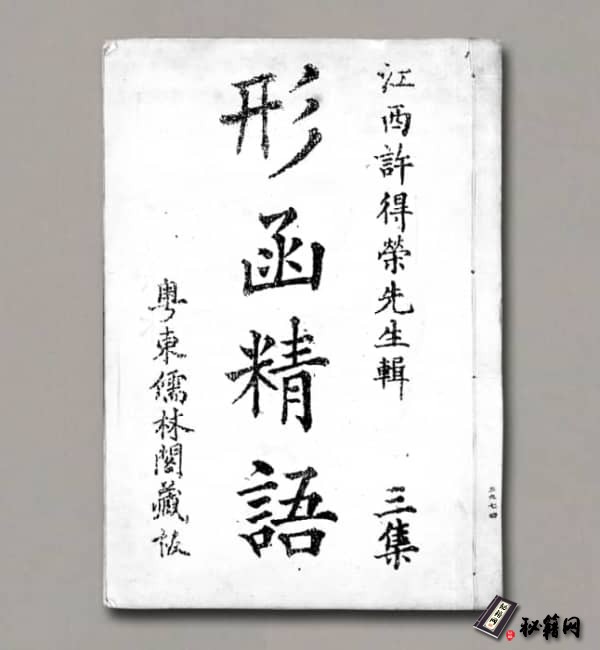 江西許得榮先生輯 三集
形函精語
粤東儒林閣藏板
秘籍网